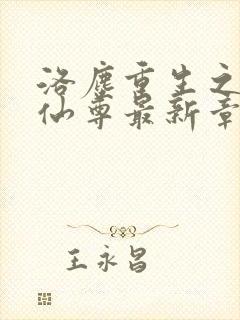 洛塵重生之
仙尊最新章
王永昌